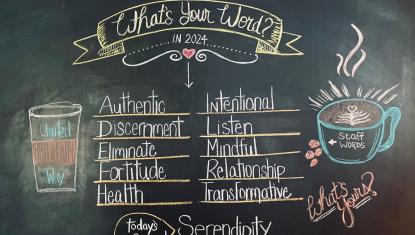 What's Your Word?
IN 2024
Authentic
Discernment
Eliminate
Fortitude
Health
Intentional
Listen
Mindful
Relationship
Transformative
United
Way
Staff
WORDS
What's
Yours?
today's
Serendipity